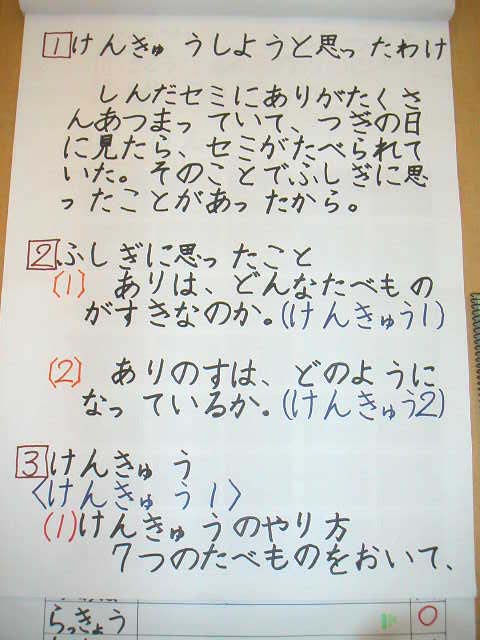 1 けんきゅうしようと思ったわけ
しんだセミにありがたくさ
んあつまっていて、つぎの日
に見たら、セミがたべられて
いた。そのことでふしぎに思
ったことがあったから。
2.ふしぎに思ったこと
(1) ありは、どんなたべもの
がすきなのか。(けんきゅう1)
(2) ありのすは、どのように
なっているか。(けんきゅう2)
3 けんきゅう
〈けんきゅう1〉
(1)けんきゅうのやり方
7つのたべものをおいて、
らっきょう ○